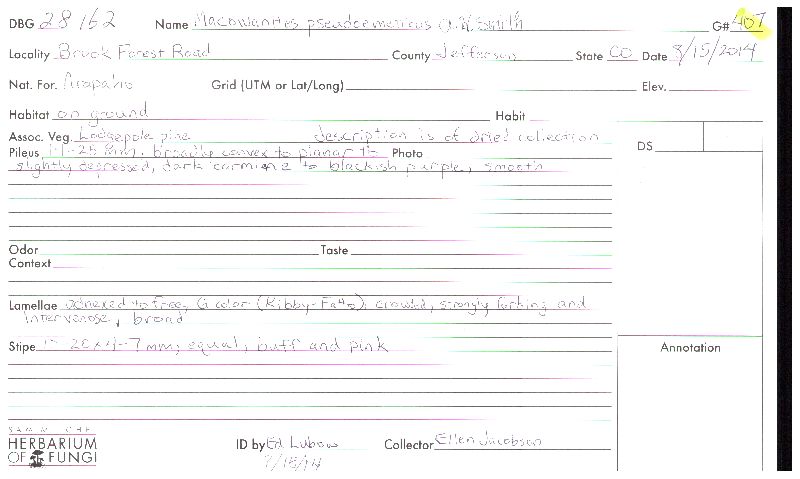 DBG 28162 Name Macowanites pseudoemeticus A.H. Smith G# 407
Locality Brook Forest Road County Jefferson State CO Date 8/15/2014
Nat. For. Arapaho Grid (UTM or Lat/Long) Elev.
Habitat on ground Habit
Assoc. Veg. Lodgepole pine description is of dried collection DS
Pileus 11-25 mm, broadly convex to planar to Photo
slightly depressed, dark carmine to blackish purple, smooth
Odor Taste
Context
Lamellae adnexed to free, G color (Kibby-Fatto), crowded, strongly forking and
intervenose, broad
Stipe 20x4-7 mm, equal, buff and pink Annotation
SAM MITCHEL
HERBARIUM
OF FUNGI
ID by Ed Lubow Collector Ellen Jacobson